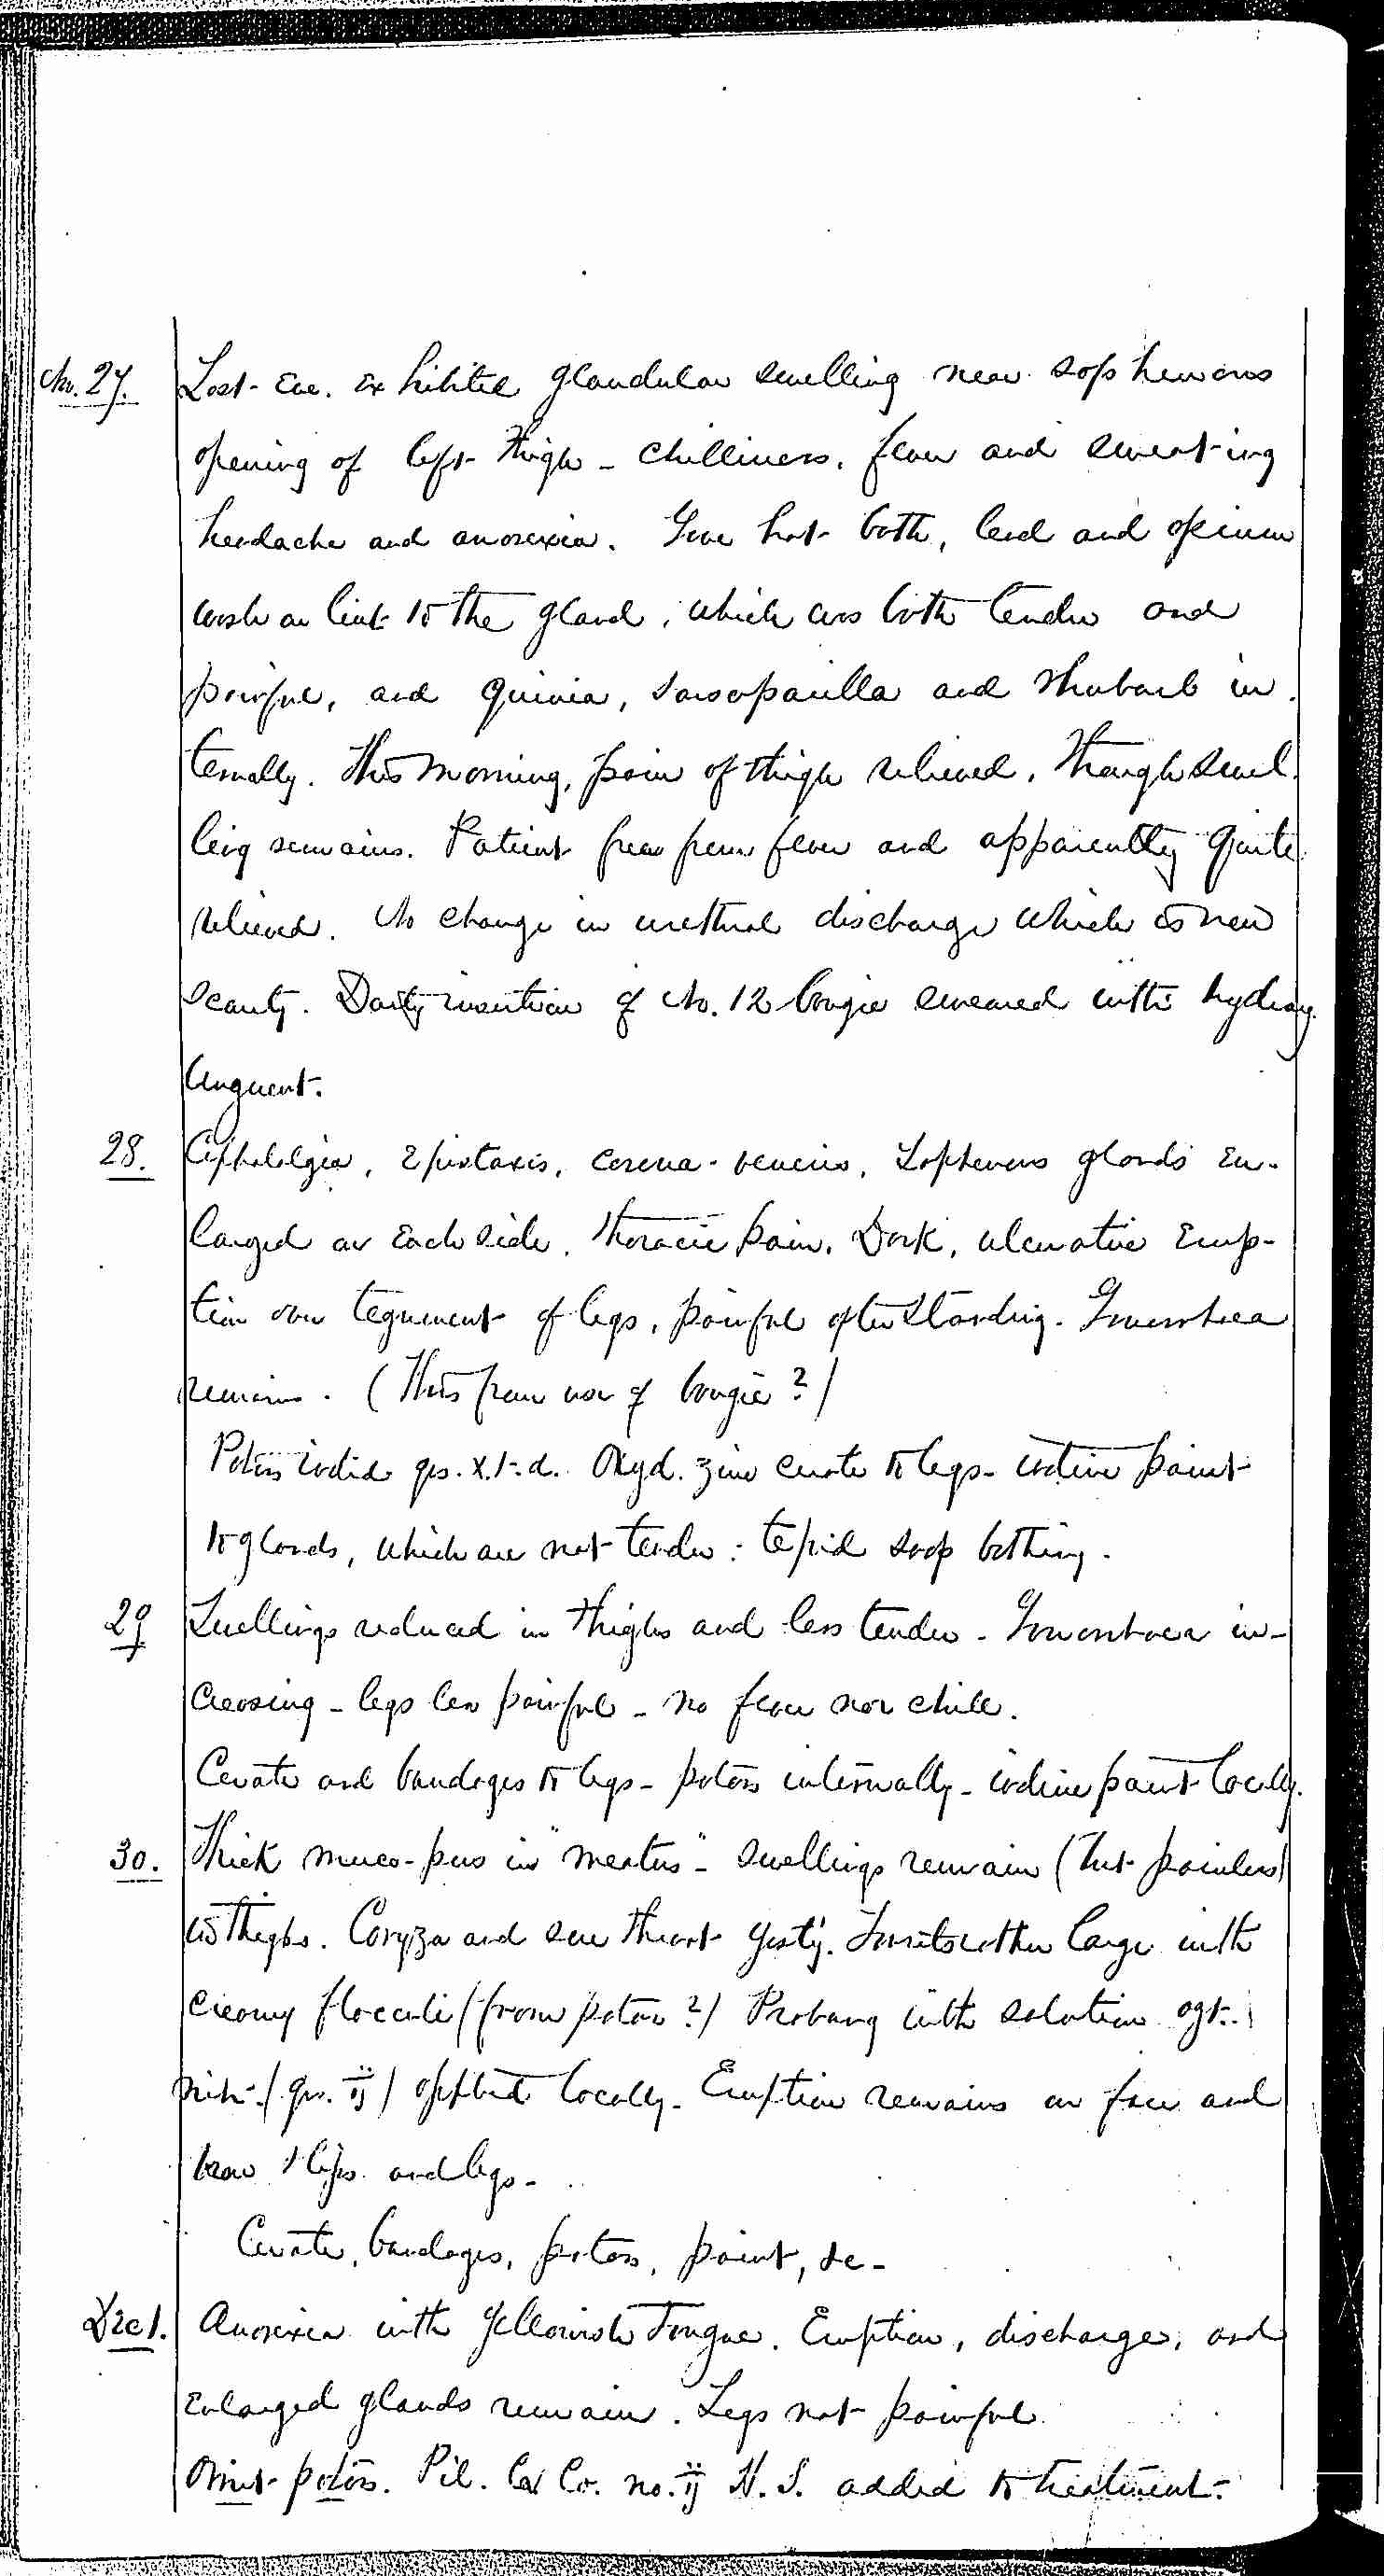 No. 27. Last Eve. Exhibited glandular swelling near saphenous
opening of left thigh - chilliness, fever and sweating
headache and anorexia. Gave hot bath, lead and opium
wash on lint to the gland, which was both tender and
painful, and quinia, sarsaparilla and rhubarb in-
ternally. This morning, pain of thigh relieved, though swel-
ling remains. Patient free from fever and apparently quite
relieved. No change in urethral discharge which is now
scanty. Daily insertion of No. 12 bougie smeared with hydrarg.
unguent.
28. Cephalalgia, Epistaxis, corona-veneris, Saphenous glands en-
larged on each side, thoracic pain. Dark, ulcerative Erup-
tion over tegument of legs, painful after standing. Gonorrhoea
remains. (This from use of bougie?)
Potass iodid grs. X. t. d. Oxyd. zinc cerate to legs - iodine paint
to glands, which are not tender: tepid soap bathing.
29 Swellings reduced in thighs and less tender - Gonorrhoea in-
creasing - legs less painful - no fever nor chill.
Cerate and bandages to legs - potass internally - iodine paint locally.
30. Thick muco-pus in "meatus" - swellings remain (but painless)
in thighs. Coryza and sore throat yest'y. Tonsils rather large with
creamy flocculi (from potass?) Probang with solution agt.
nitr. (grs. ij) applied locally. Eruption remains on face and
brow & hips and legs -
Cerate, bandages, potass, paint, &c -
Dec 1. Anorexia with yellowish tongue. Eruption, discharge, and
enlarged glands remain. Legs not painful.
Omit potass. Pil. Cat Co. no. ij H. S. added to treatment.